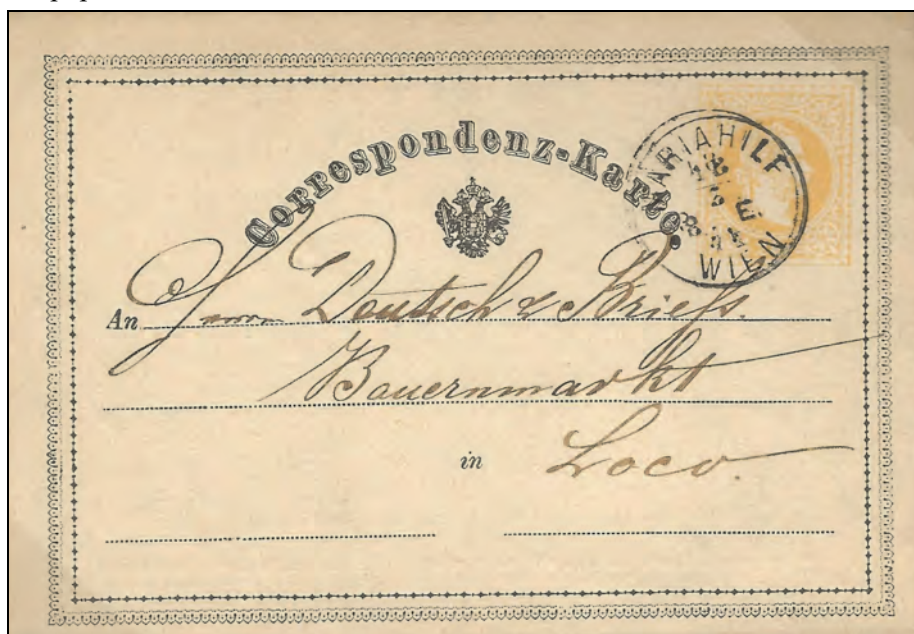 Correspondenz-Karte.
ARIAHILF
WIEN
An Herrn Deutsch & Briefs.
Bauernmarkt
in Loco.